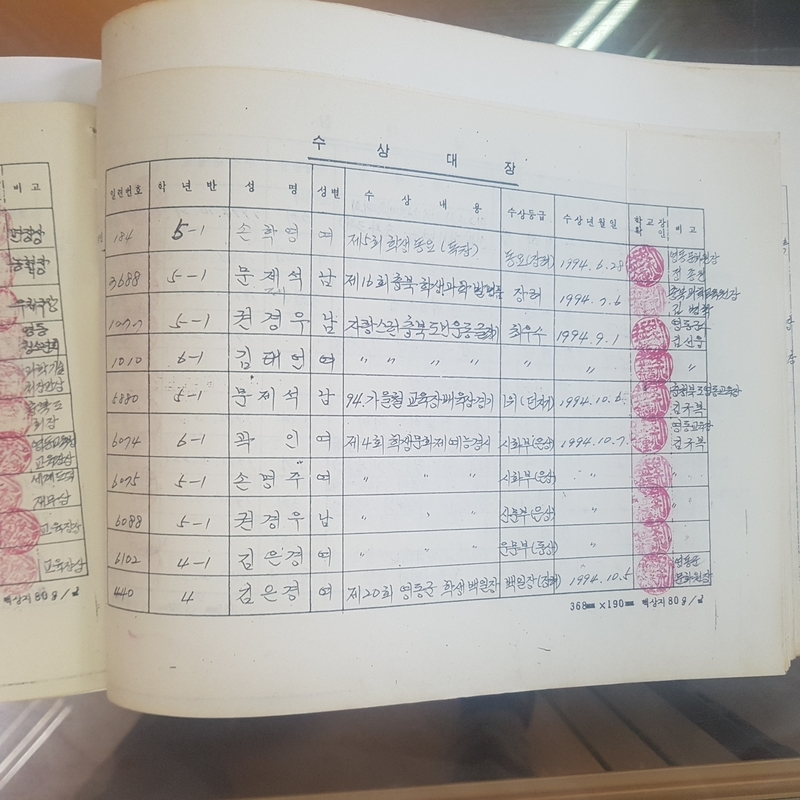 수 상 대 장
일련번호 학 년 반 성 명 성별 수 상 내 용 수상등급 수상년월일 학교장 확인 비 고
184 5-1 손학영 여 제5회 학생동요(독창) 동요(장려) 1994.6.28 영동문화원장
3688 5-1 문제석 남 제16회 충북 학생과학발명품 장려 1994.7.6 충북과학교육원장
1077 5-1 권경우 남 자랑스런 충북도민운동글짓기 최우수 1994.9.1 영동군수
1010 6-1 김태언 여 〃 〃 〃 〃 〃 〃
5880 5-1 문제석 남 94.가을철 교육장배육상경기 1위(단체) 1994.10.6. 충청북도영동교육장 김규복
6074 6-1 곽인 여 제4회 학생문화제 예능경시 시화부(은상) 1994.10.7. 영동교육장 김규복
6075 5-1 손명주 여 〃 〃 〃 시화부(은상) 〃 〃
6088 5-1 권경우 남 〃 〃 〃 산문부(은상) 〃 〃
6102 4-1 김은경 여 〃 〃 〃 운문부(동상) 〃
440 4 김은경 여 제20회 영동군 학생백원장 백원장(장려) 1994.10.5 영동군 문화원장
368㎜ ×190㎜ 백상지 80g/㎡
비 고
면장상
농협장
영동
청소년회
과학기술
회장
교육장상
교육장상
교육장상
백상지 80g/㎡